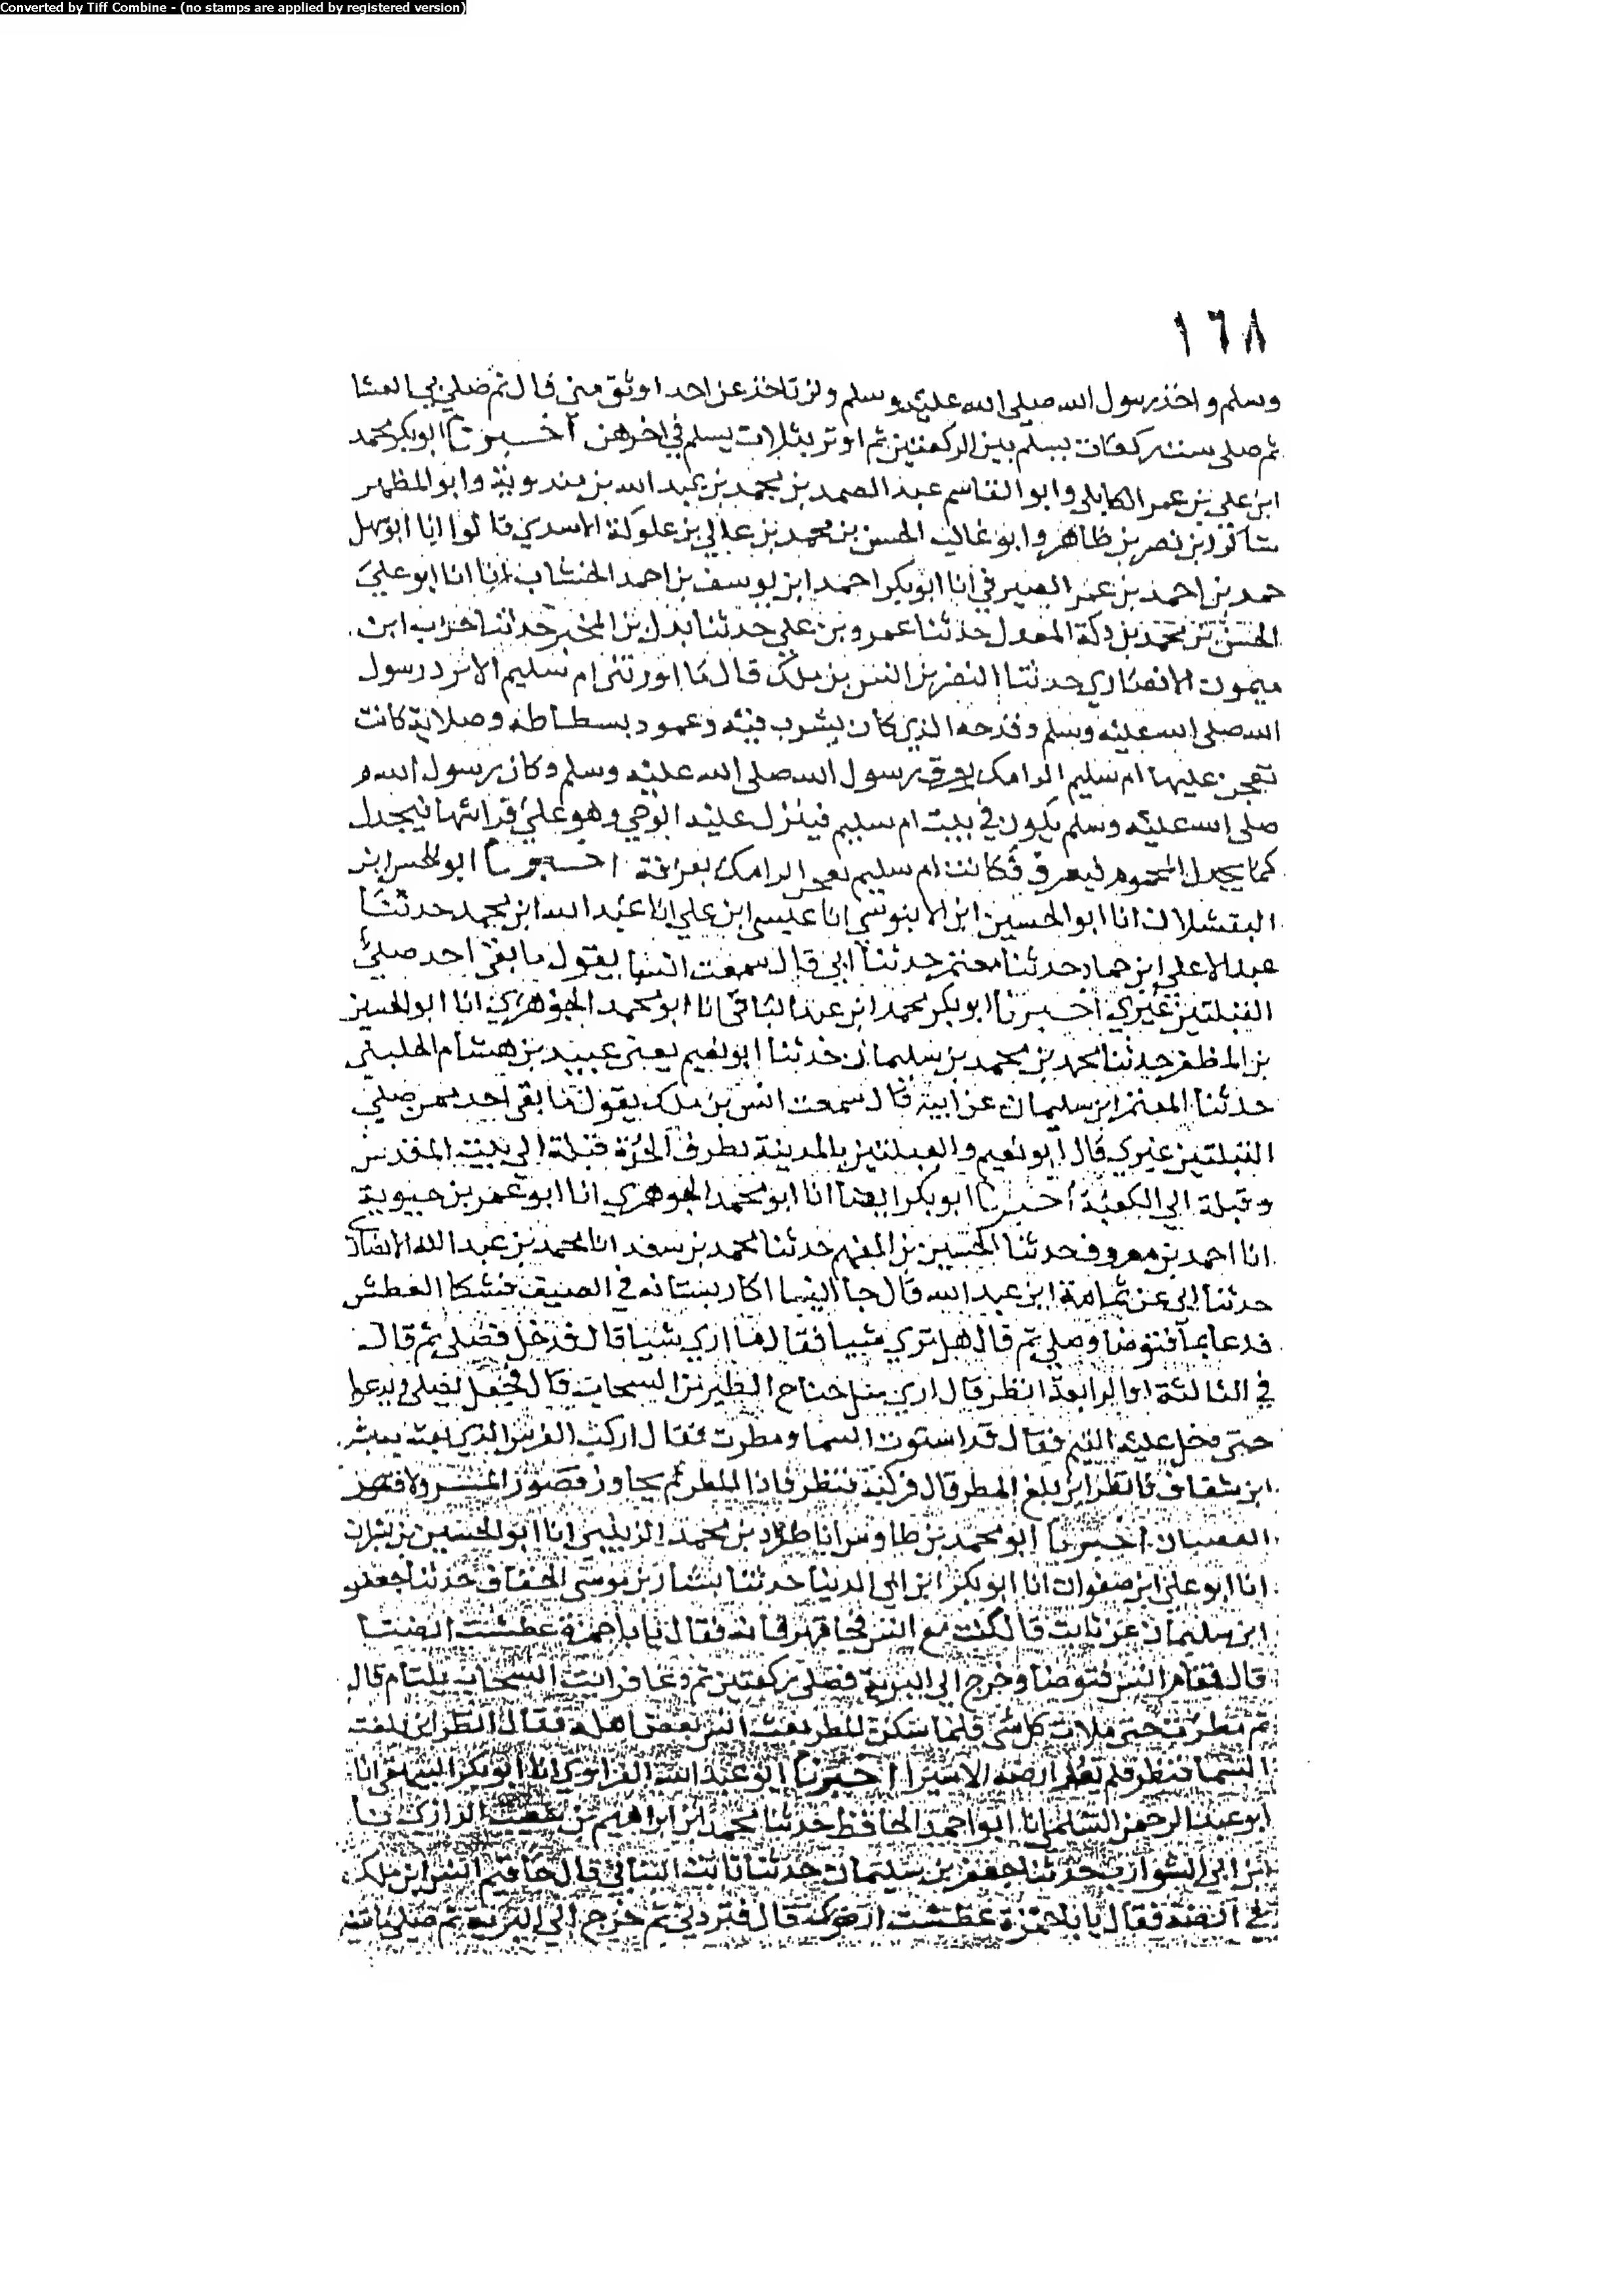 Converted by Tiff Combine - (no stamps are applied by registered version)
١٦٨
وسلم واخذ رسول الله صلى الله عليه وسلم ولن تاخذ عن احد اوثق مني قال ثم صلى بي العشا
ثم صلى ست ركعات يسلم بين الركعتين ثم اوتر بثلاث يسلم في اخرهن اخبرنا ابو بكر محمد
ابن علي بن عمر الكابلي وابو القاسم عبد الصمد بن محمد بن عبد الله بن مندوية وابو المظهر
شاكر بن نصر بن طاهر وابو غالب الحسن بن محمد بن عالي بن علوكة الاسدي قالوا انا ابو سهل
حمد بن احمد بن عمر الصيرفي انا ابو بكر احمد ابن يوسف بن احمد الخشاب انا انا ابو علي
الحسن بن محمد بن دكة المعدل حدثنا عمرو بن علي حدثنا بدل بن المحبر حدثنا حرب ابن
ميمون الانصاري حدثنا النضر بن انس بن ملك قال ما اورثني ام سليم الا برد رسول
الله صلى الله عليه وسلم وقدحه الذي كان يشرب فيه وعمود بسطاطه وصلاية كانت
تعجن عليها ام سليم الرامك بعرق رسول الله صلى الله عليه وسلم وكان رسول الله
صلى الله عليه وسلم يكون في بيت ام سليم فينزل عليه الوحي وهو على فراشها فيجدل
كما يجدل المحموم فيعرق فكانت ام سليم تعجن الرامك بعرقه اخبرنا ابو الحسن ابن
البقشلان انا ابو الحسين ابن الابنوسي انا عيسى ابن علي انا عبد الله ابن محمد حدثنا
عبد الاعلى ابن حماد حدثنا معتمر حدثنا ابي قال سمعت انسا يقول ما بقي احد صلى
القبلتين غيري اخبرنا ابو بكر محمد ابن عبد الباقي انا ابو محمد الجوهري انا ابو الحسين
بن المظفر حدثنا محمد بن محمد بن سليمان حدثنا ابو نعيم يعني عبيد بن هشام الحلبي
حدثنا المعتمر ابن سليمان عن ابيه قال سمعت انس بن ملك يقول ما بقي احد ممن صلى
القبلتين غيري قال ابو نعيم والقبلتين بالمدينة بطرف الحرة قبلة الى بيت المقدس
وقبلة الى الكعبة اخبرنا ابو بكر ايضا انا ابو محمد الجوهري انا ابو عمر بن حيوية
انا احمد بن معروف حدثنا الحسين بن الفهم حدثنا محمد بن سعد انا محمد بن عبد الله الانصاري
حدثنا ابي عن ثمامة ابن عبد الله قال جا انسا اكار بستانه في الصيف فشكا العطش
فدعا بمآ فتوضا وصلى ثم قال هل ترى شيا فقال ما ارى شيا قال فدخل فصلى ثم قال
في الثالثة او الرابعة انظر قال ارى مثل جناح الطير من السحاب قال فجعل يصلي ويدعوا
حتى دخل عليه القيم فقال قد استوت السما ومطرت فقال اركب الفرس الذي بعث به بشر
ابن شغاف فانظر اين بلغ المطر قال فركبه فنظر فاذا المطر لم يجاوز قصور المسيرين ولا قصر
الغضبان اخبرنا ابو محمد بن طاوس انا طراد بن محمد الزينبي انا ابو الحسين بن بشران
انا ابو علي ابن صفوان انا ابو بكر ابن ابي الدنيا حدثنا بشار بن موسى الخفاف حدثنا جعفر
ابن سليمان عن ثابت قال كنت مع انس فجا قهرمانه فقال يا با حمزة عطشت ارضنا
قال فقام انس فتوضا وخرج الى البرية فصلى ركعتين ثم دعا فرايت السحاب يلتام قال
ثم مطرت حتى ملات كل شي فلما سكن المطر بعث انس بعض اهله فقال انظر اين بلغت
السما فنظر فلم تعد ارضه الا يسيرا اخبرنا ابو عبد الله الفراوي انا ابو بكر البيهقي انا
ابو عبد الرحمن السلمي انا ابو احمد الحافظ حدثنا محمد بن ابراهيم بن شعيب
بن ابي الشوارب حدثنا جعفر بن سليمان حدثنا ثابت البناني قال جا قيم انس ابن ملك
في ارضه فقال يا با حمزة عطشت ارضوك قال فتردى ثم خرج الى البرية ثم صلى